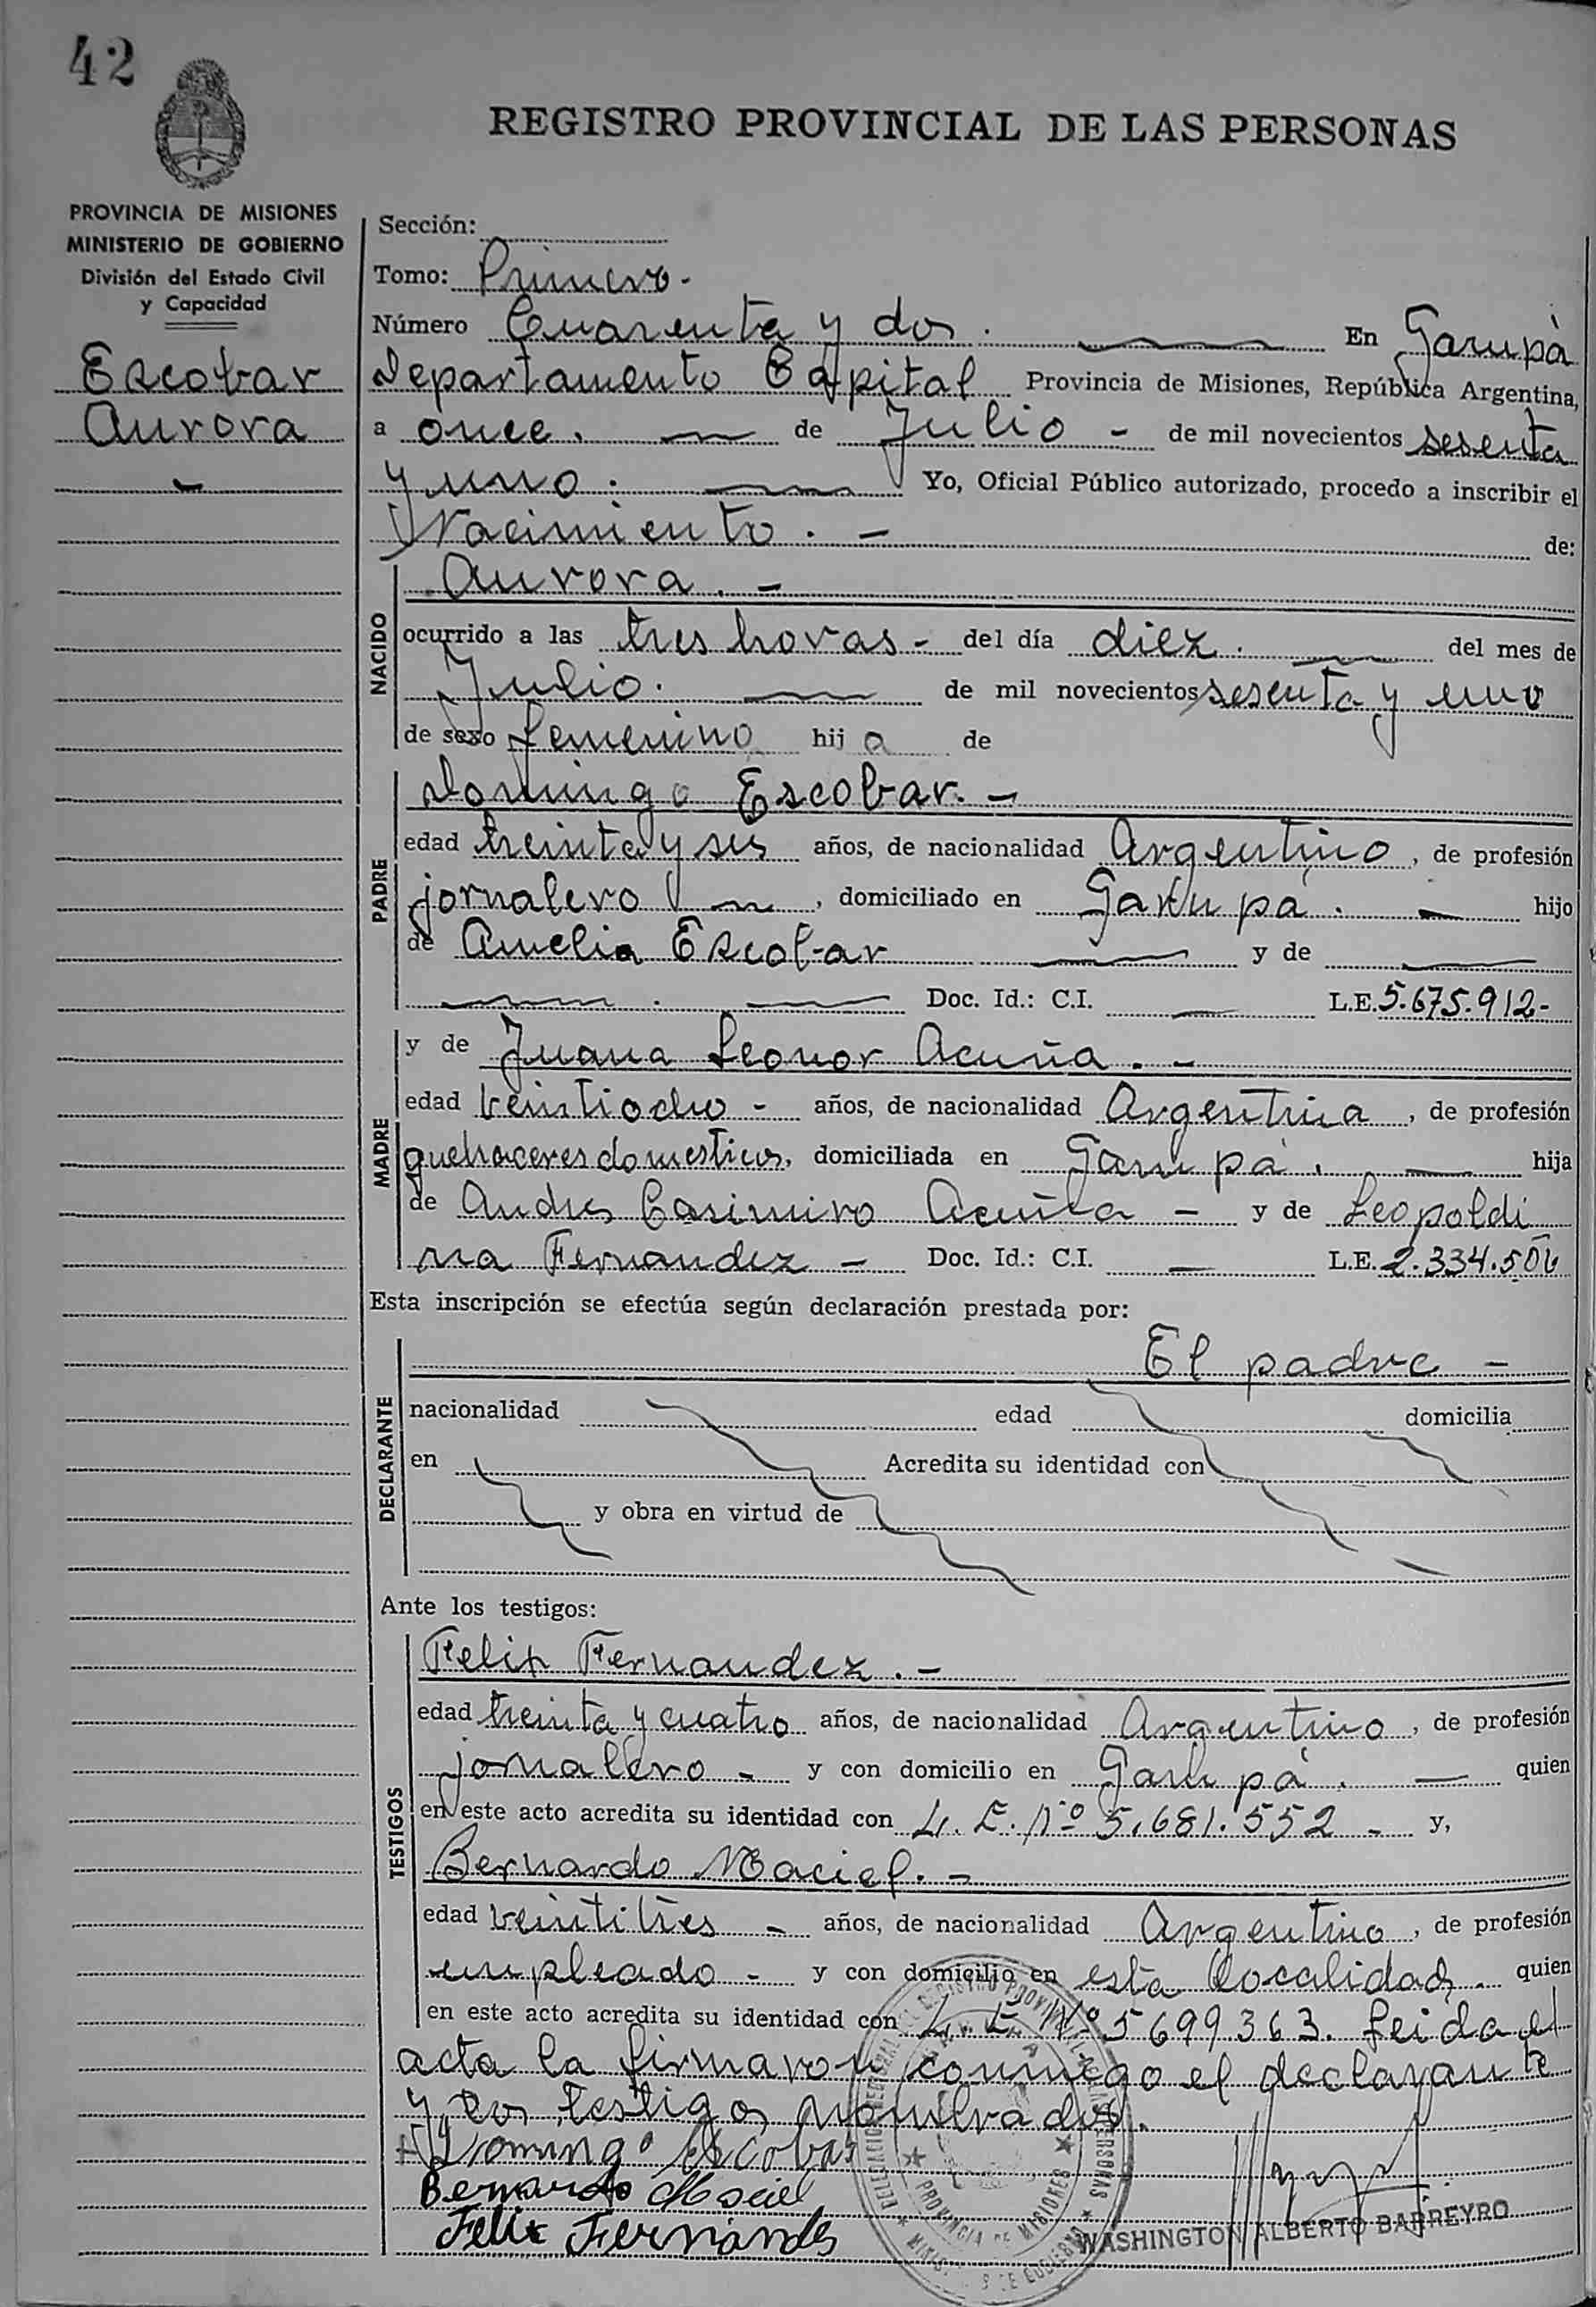 42
REGISTRO PROVINCIAL DE LAS PERSONAS
PROVINCIA DE MISIONES
MINISTERIO DE GOBIERNO
División del Estado Civil
y Capacidad
Escobar
Aurora
-
Sección:
Tomo: Primero.-
Número Cuarenta y dos. — En Garupá
Departamento Capital Provincia de Misiones, República Argentina,
a once. — de Julio - de mil novecientos sesenta
y uno. — Yo, Oficial Público autorizado, procedo a inscribir el
Nacimiento. - de:
NACIDO
Aurora. -
ocurrido a las tres horas - del día diez. — del mes de
Julio. — de mil novecientos sesenta y uno
de sexo femenino hij a de
PADRE
Domingo Escobar. -
edad treinta y seis años, de nacionalidad Argentino, de profesión
jornalero —, domiciliado en Garupá. — hijo
de Amelia Escobar — y de —
— . — Doc. Id.: C.I. — L.E. 5.675.912-
MADRE
y de Juana Leonor Acuña. -
edad veintiocho - años, de nacionalidad Argentina, de profesión
quehaceres domesticos, domiciliada en Garupá. — hija
de Andres Casimiro Acuña - y de Leopoldi
na Fernandez - Doc. Id.: C.I. — L.E. 2.334.506
Esta inscripción se efectúa según declaración prestada por:
DECLARANTE
El padre -
nacionalidad edad domicilia
en Acredita su identidad con
y obra en virtud de
Ante los testigos:
TESTIGOS
Felix Fernandez. -
edad treinta y cuatro años, de nacionalidad Argentino, de profesión
jornalero - y con domicilio en Garupá. — quien
en este acto acredita su identidad con L. E. Nº 5.681.552 - y,
Bernardo Maciel. -
edad veintitres - años, de nacionalidad Argentino, de profesión
empleado - y con domicilio en esta localidad. quien
en este acto acredita su identidad con L. E. Nº 5699363. Leida el
acta la firmaron conmigo el declarante
y los testigos nombrados.
Domingo Escobar
Bernardo Maciel
Felix Fernandes
PROVINCIA DE MISIONES
WASHINGTON ALBERTO BARREYRO